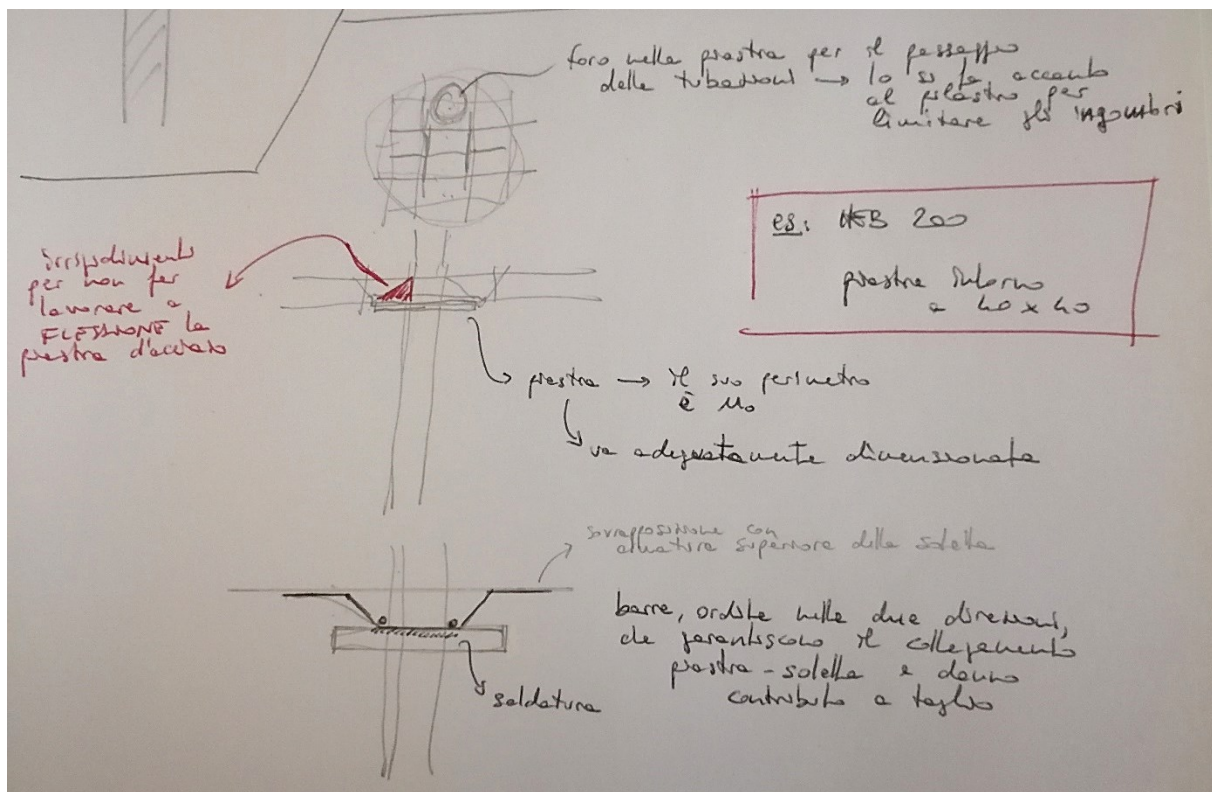 foro nella piastra per il passaggio
delle tubazioni → lo si fa accanto
al pilastro per
limitare gli ingombri
es: HEB 200
piastra intorno
a 40 x 40
irrigidimento
per non far
lavorare a
FLESSIONE la
piastra d'acciaio
piastra → il suo perimetro
è u₀
va adeguatamente dimensionata
sovrapposizione con
armatura superiore della soletta
barre, ordite nelle due direzioni,
che garantiscono il collegamento
piastra - soletta e danno
contributo a taglio
saldatura